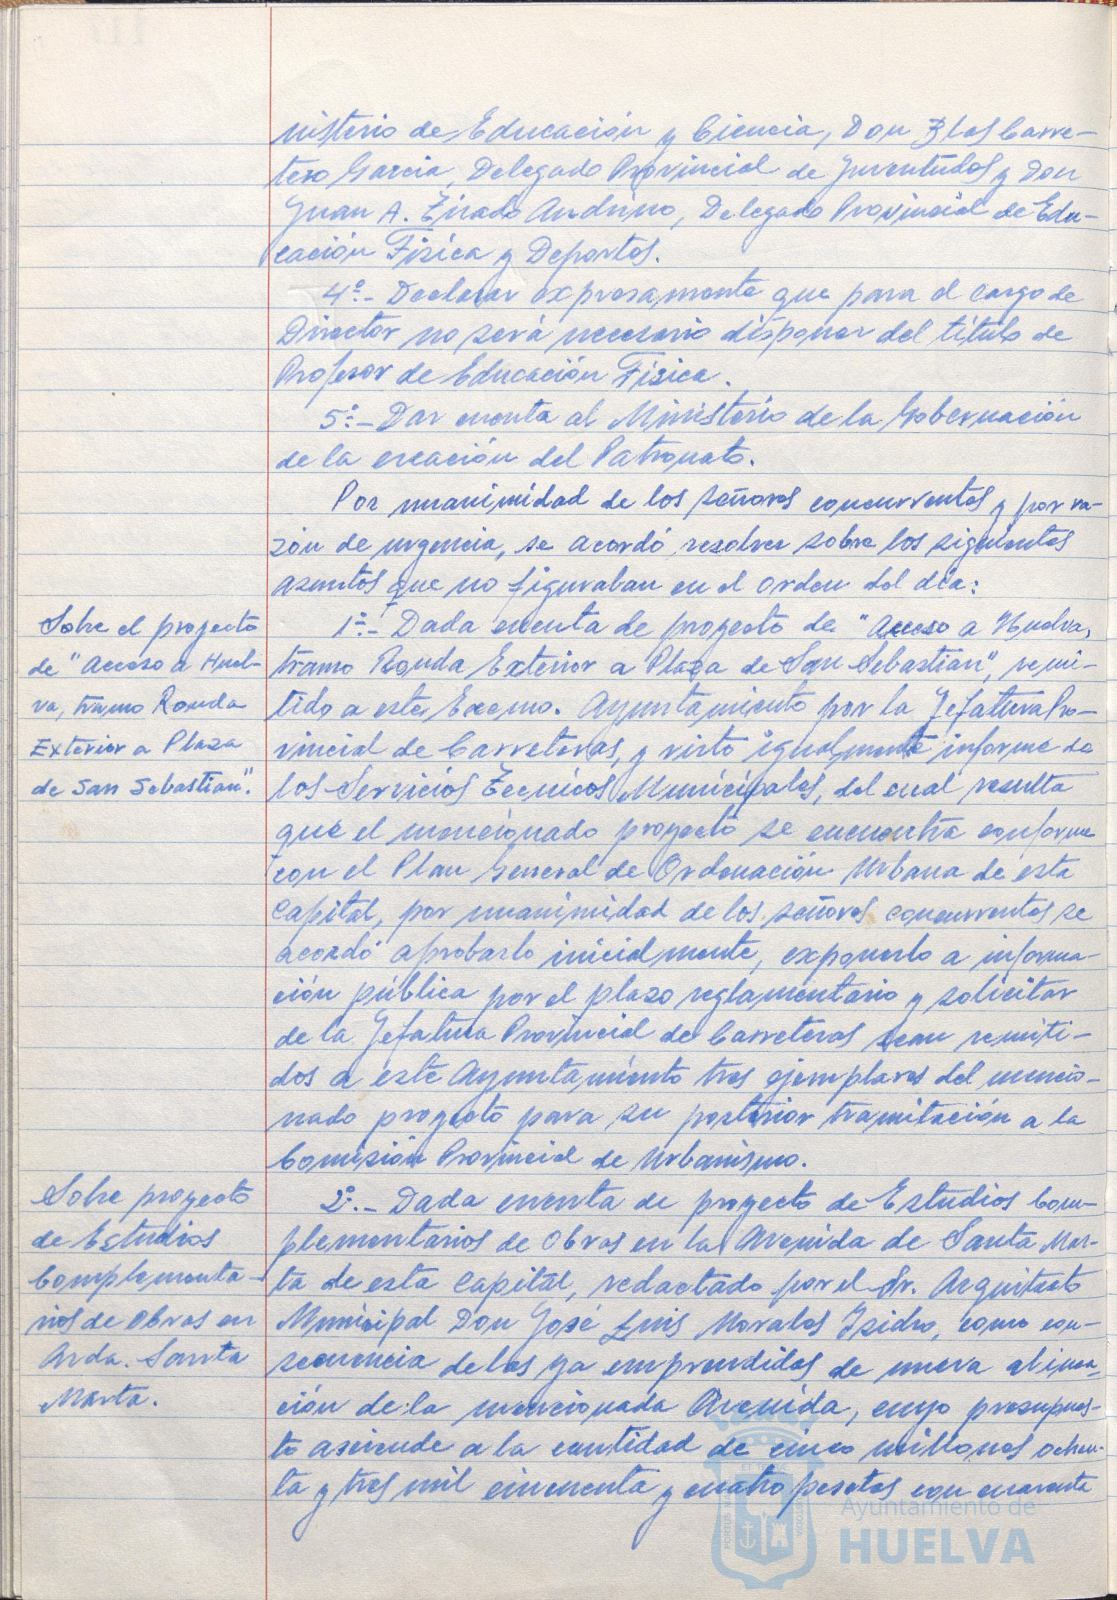 nisterio de Educación y Ciencia, Don Blas Carre-
tero García, Delegado Provincial de Juventudes y Don
Juan A. Tirado Andrino, Delegado Provincial de Edu-
cación Física y Deportes.
4º.- Declarar expresamente que para el cargo de
Director no será necesario disponer del título de
Profesor de Educación Física.
5º.- Dar cuenta al Ministerio de la Gobernación
de la creación del Patronato.
Por unanimidad de los señores concurrentes y por ra-
zón de urgencia, se acordó resolver sobre los siguientes
asuntos que no figuraban en el orden del día:
Sobre el proyecto
de "Acceso a Huel-
va, tramo Ronda
Exterior a Plaza
de San Sebastian".
1º.- Dada cuenta de proyecto de "Acceso a Huelva,
tramo Ronda Exterior a Plaza de San Sebastián", remi-
tido a este Excmo. Ayuntamiento por la Jefatura Pro-
vincial de Carreteras, y visto igualmente informe de
los Servicios Técnicos Municipales, del cual resulta
que el mencionado proyecto se encuentra conforme
con el Plan General de Ordenación Urbana de esta
Capital, por unanimidad de los señores concurrentes se
acordó aprobarlo inicialmente, exponerlo a informa-
ción pública por el plazo reglamentario y solicitar
de la Jefatura Provincial de Carreteras sean remiti-
dos a este Ayuntamiento tres ejemplares del mencio-
nado proyecto para su posterior tramitación a la
Comisión Provincial de Urbanismo.
Sobre proyecto
de Estudios
Complementa-
rios de Obras en
Avda. Santa
Marta.
2º.- Dada cuenta de proyecto de Estudios Com-
plementarios de Obras en la Avenida de Santa Mar-
ta de esta Capital, redactado por el Sr. Arquitecto
Municipal Don José Luis Morales Isidro, como con-
secuencia de las ya emprendidas de nueva alinea-
ción de la mencionada Avenida, cuyo presupues-
to asciende a la cantidad de cinco millones ochen-
ta y tres mil cincuenta y cuatro pesetas con cuarenta
Ayuntamiento de
HUELVA